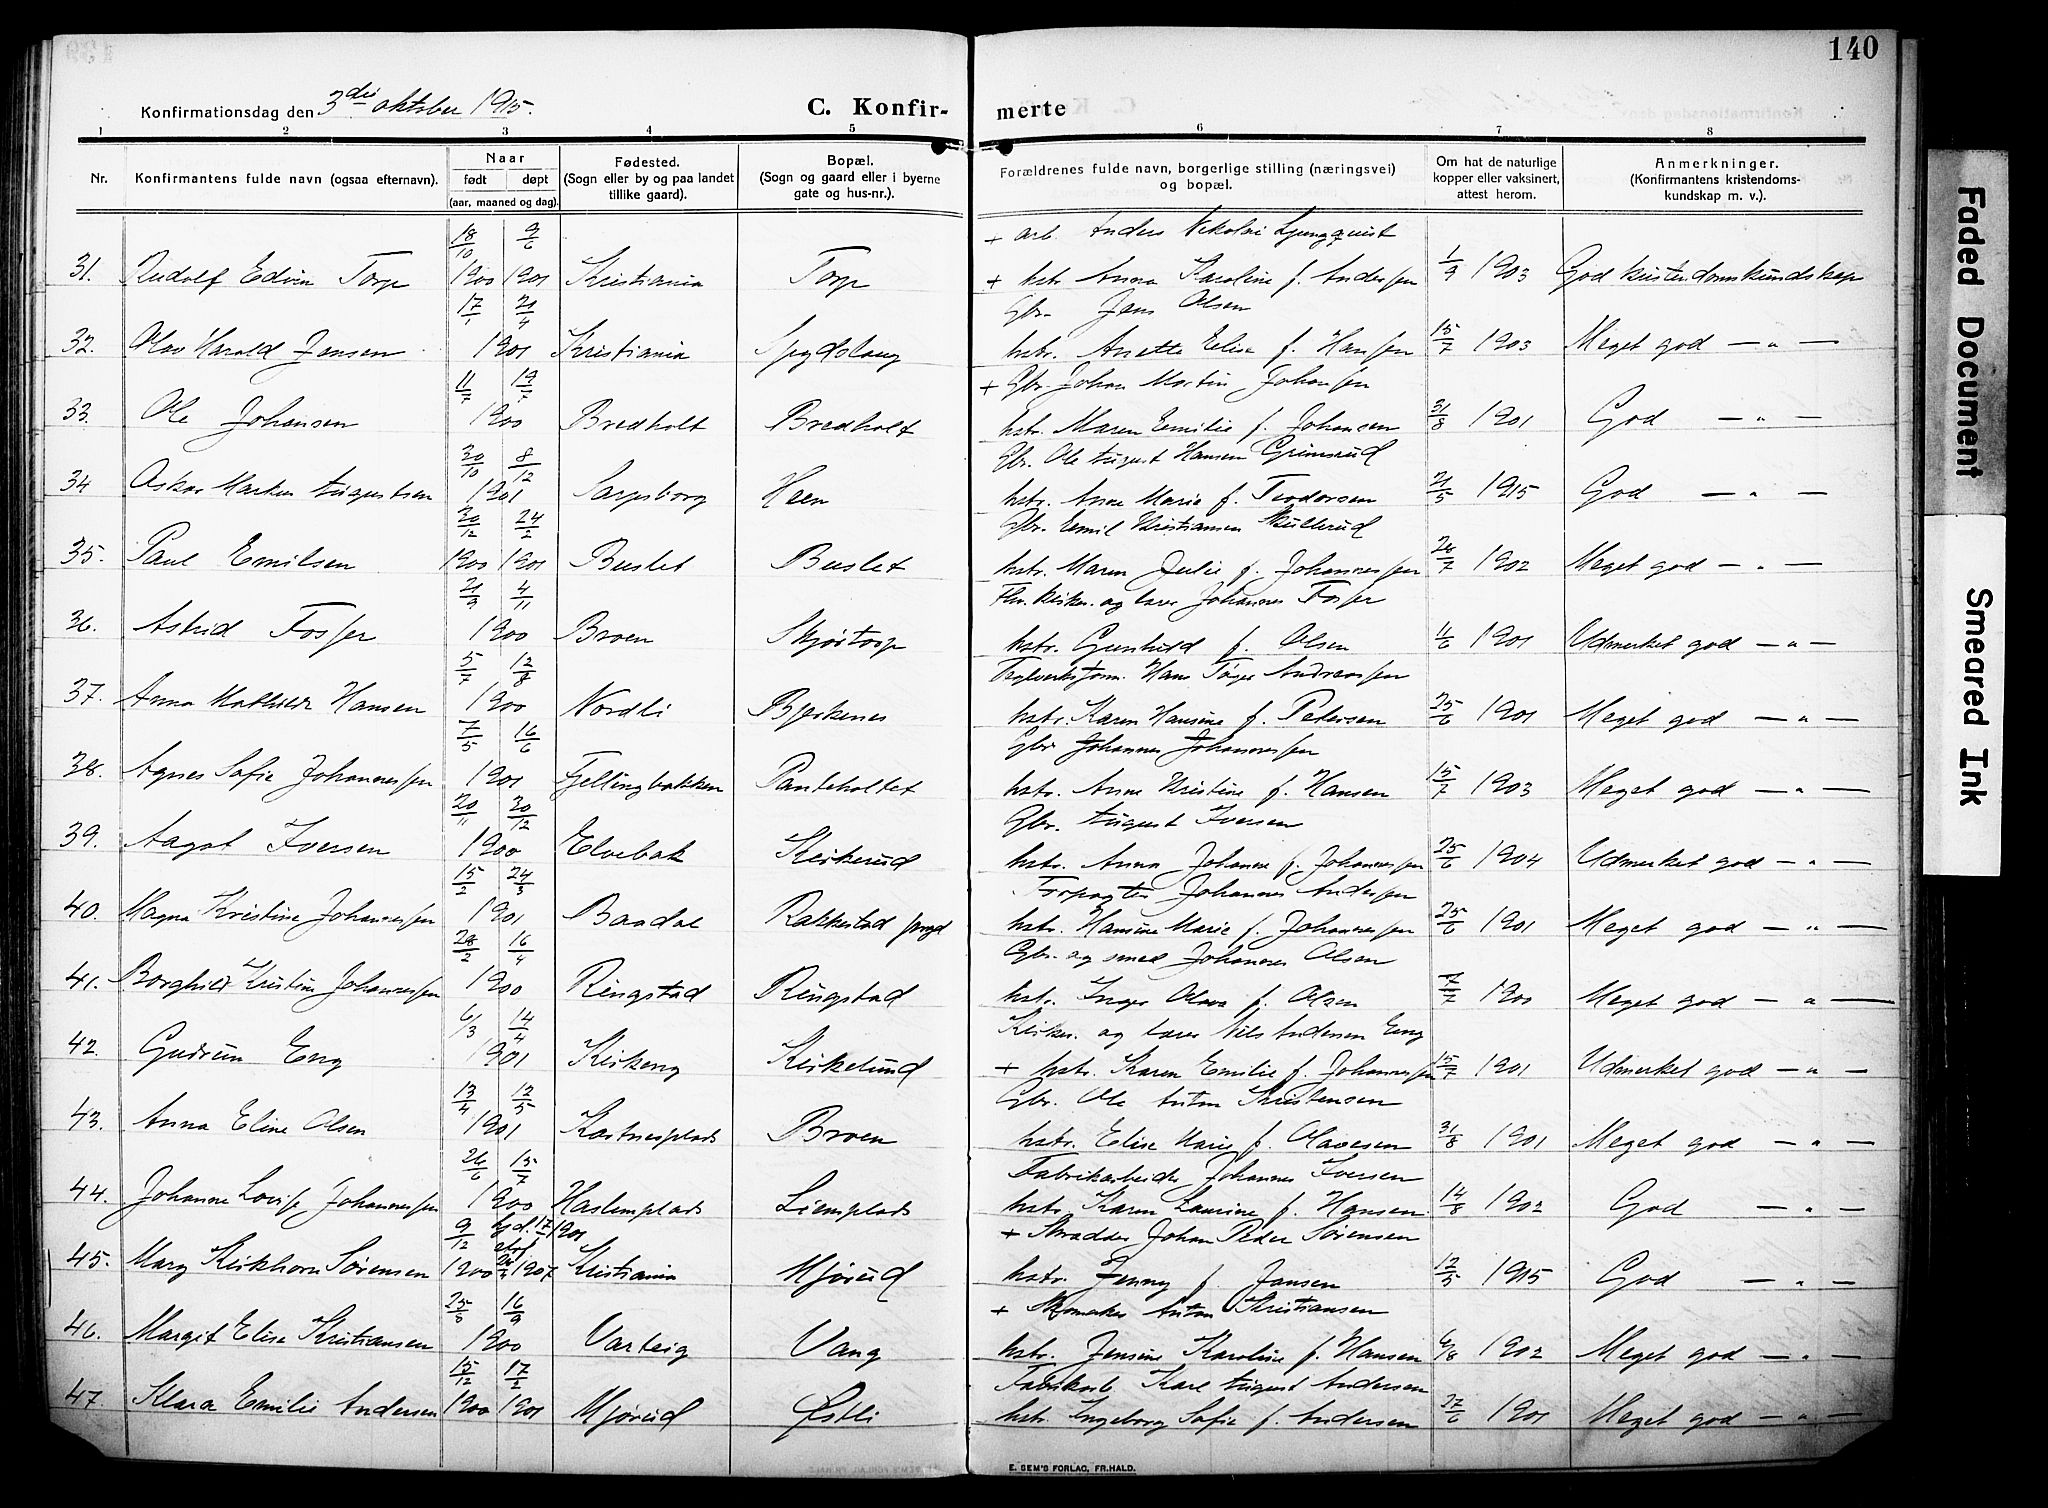 140
Konfirmationsdag den 3die oktober 1915.
C. Konfirmerte
1 2 3 4 5 6 7 8
Nr.
Konfirmantens fulde navn (ogsaa efternavn).
Naar
født døpt
(aar, maaned og dag).
Fødested.
(Sogn eller by og paa landet
tillike gaard).
Bopæl.
(Sogn og gaard eller i byerne
gate og hus-nr.).
Forældrenes fulde navn, borgerlige stilling (næringsvei)
og bopæl.
Om hat de naturlige
kopper eller vaksinert,
attest herom.
Anmerkninger.
(Konfirmantens kristendoms-
kundskap m. v.).
18/10 9/6 + arb. Anders Nikolai Ljungquist
31. Rudolf Edvin Torp 1900 1901 Kristiania Torp + hstr. Anna Karoline f. Andersen 1/9 1903 God kristendomskundskap
17/1 21/4 Gbr. Jens Olsen
32. Olav Harald Jensen 1901 Kristiania Spydslaug hstr. Anette Elise f. Hansen 15/7 1903 Meget god — " —
11/7 19/7 + Gbr. Johan Martin Johansen
33. Ole Johansen 1900 Bredholt Bredholt hstr. Maren Emilie f. Johansen 31/8 1901 God — " —
30/10 8/12 Gbr. Ole August Hansen Grimsrud
34 Oskar Marken Augustsen 1901 Sarpsborg Heen hstr. Anne Marie f. Teodorsen 21/5 1915 God — " —
30/12 24/2 Gbr. Emil Kristiansen Skullerud
35. Paul Emilsen 1900 1901 Buslet Buslet hstr. Maren Julie f. Johannessen 28/7 1902 Meget god — " —
21/9 4/11 Fhv. kirkes. og lærer Johannes Fosser
36. Astrid Fosser 1900 Broen Skjørtorp hstr. Gunhild f. Olsen 11/6 1901 Udmerket god — " —
5/7 12/8 Teglverksform. Hans Tøger Andreassen
37. Anna Mathilde Hansen 1900 Nordli Bjerkenes hstr. Karen Hansine f. Petersen 25/6 1901 Meget god — " —
7/5 16/6 Gbr. Johannes Johannessen
38. Agnes Sofie Johannessen 1901 Fjellingbakken Panteholtet hstr. Anne Kristine f. Hansen 15/7 1903 Meget god — " —
20/11 30/12 Gbr. August Iversen
39. Aagot Iversen 1900 Elvebak Kirkerud hstr. Anna Johanne f. Johannessen 25/6 1904 Udmerket god — " —
15/2 24/3 Forpagter Johannes Andersen
40. Magna Kristine Johannessen 1901 Baadal Rakkestad prgd hstr. Hansine Marie f. Johannessen 25/6 1901 Meget god — " —
28/2 16/4 Gbr. og smed Johannes Olsen
41. Borghild Kristine Johannessen 1900 Ringstad Ringstad hstr. Inger Olava f. Olsen 7/7 1900 Meget god — " —
6/3 14/4 Kirkes. og lærer Nils Andersen Eng
42. Gudrun Eng 1901 Kirkeng Kirkelund + hstr. Karen Emilie f. Johannessen 15/7 1901 Udmerket god — " —
13/4 12/5 Gbr. Ole Anton Kristensen
43. Anna Eline Olsen 1901 Kastnesplads Broen hstr. Elise Marie f. Olavesen 31/8 1901 Meget god — " —
26/6 15/7 Fabrikarbeider Johannes Iversen
44. Johanne Lovise Johannessen 1900 Haslemplads Liemplads hstr. Karen Laurine f. Hansen 14/8 1902 God — " —
9/12 hjd. 17/1 1901 + Skrædder Johan Peder Sørensen
45. Mary Kirkhorn Sørensen 1900 1907 Kristiania Mjørud hstr. Jenny f. Jansen 12/5 1915 God — " —
25/8 16/9 + Skomaker Anton Kristiansen
46. Margit Elise Kristiansen 1900 Varteig Vang hstr. Jensine Karoline f. Hansen 6/8 1902 Meget god — " —
15/12 17/2 Fabrikarb. Karl August Andersen
47. Klara Emilie Andersen 1900 1901 Mjørud Østli hstr. Ingeborg Sofie f. Andersen 27/6 1901 Meget god — " —
E. SEM'S FORLAG, FR.HALD.
Faded Document
Smeared Ink